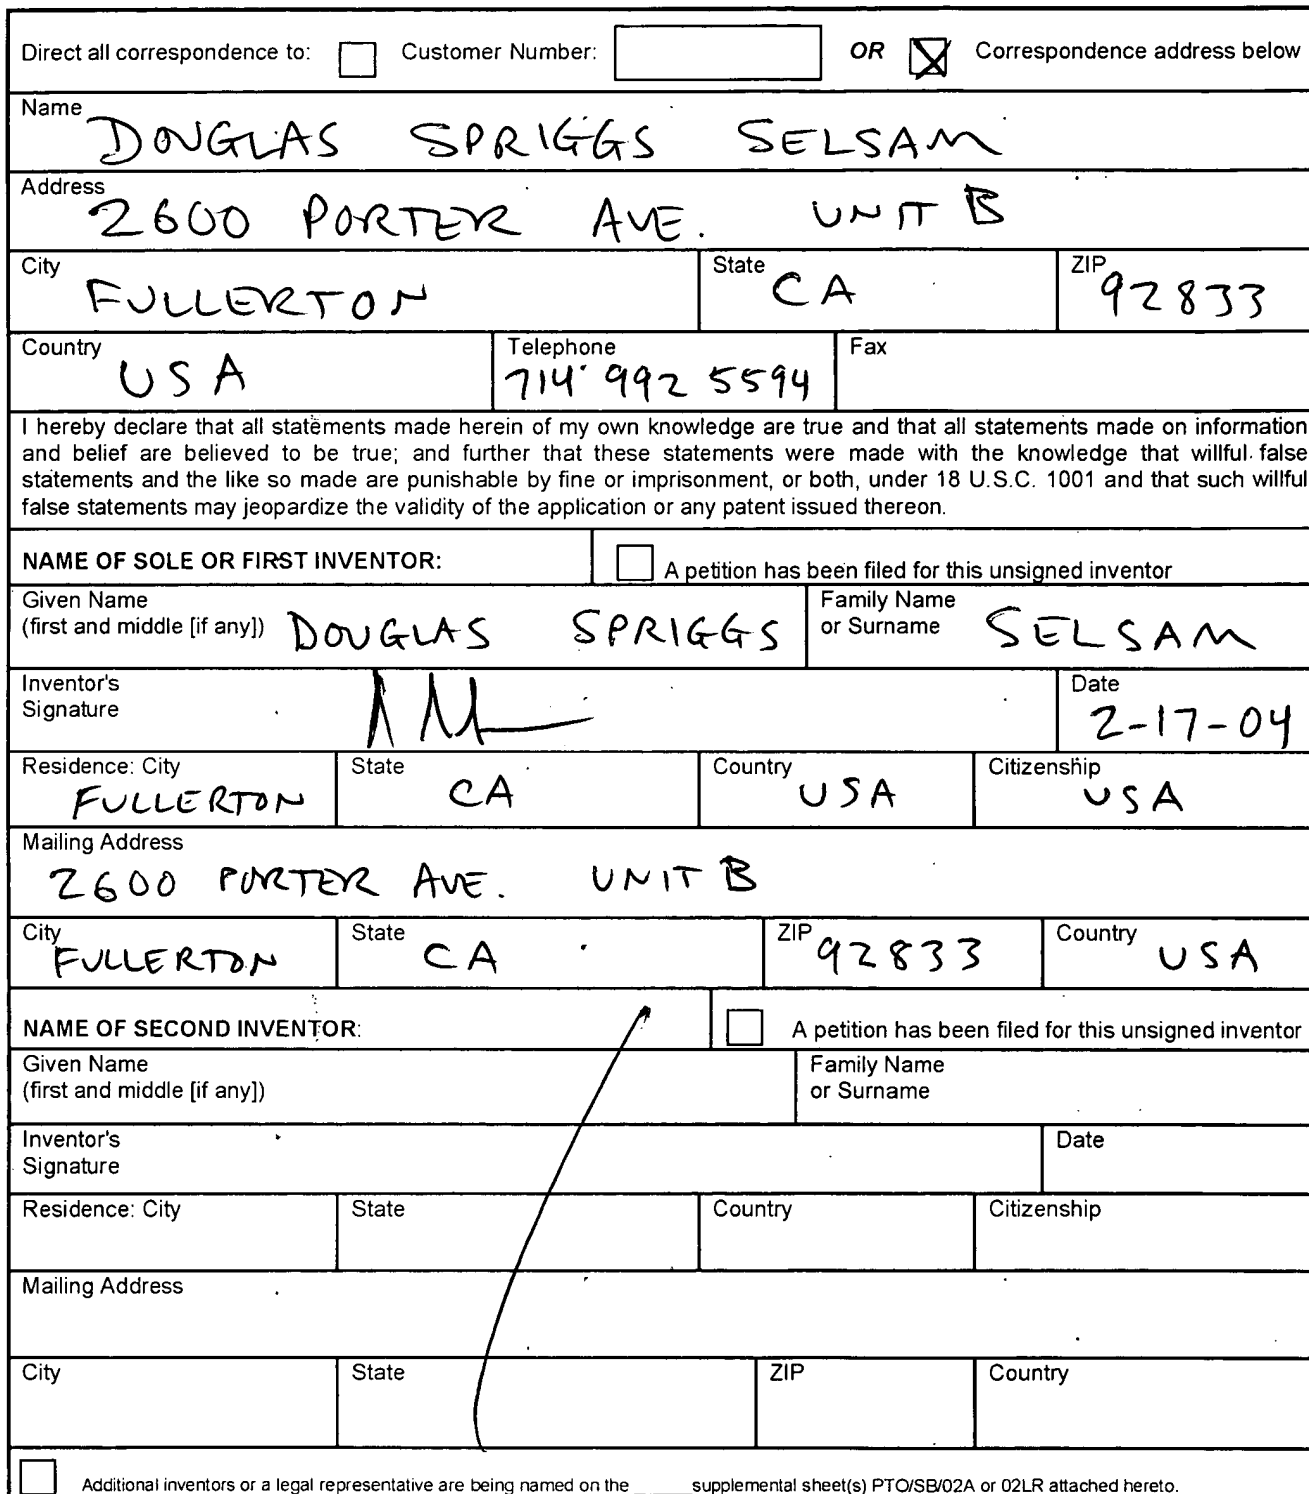 Direct all correspondence to: Customer Number: OR Correspondence address below
Name
DOUGLAS SPRIGGS SELSAM
Address
2600 PORTER AVE. UNIT B
City State ZIP
FULLERTON CA 92833
Country Telephone Fax
USA 714 992 5594
I hereby declare that all statements made herein of my own knowledge are true and that all statements made on information
and belief are believed to be true; and further that these statements were made with the knowledge that willful false
statements and the like so made are punishable by fine or imprisonment, or both, under 18 U.S.C. 1001 and that such willful
false statements may jeopardize the validity of the application or any patent issued thereon.
NAME OF SOLE OR FIRST INVENTOR: A petition has been filed for this unsigned inventor
Given Name Family Name
(first and middle [if any]) DOUGLAS SPRIGGS or Surname SELSAM
Inventor's Date
Signature 2-17-04
Residence: City State Country Citizenship
FULLERTON CA USA USA
Mailing Address
2600 PORTER AVE. UNIT B
City State ZIP Country
FULLERTON CA 92833 USA
NAME OF SECOND INVENTOR: A petition has been filed for this unsigned inventor
Given Name Family Name
(first and middle [if any]) or Surname
Inventor's Date
Signature
Residence: City State Country Citizenship
Mailing Address
City State ZIP Country
Additional inventors or a legal representative are being named on the ______supplemental sheet(s) PTO/SB/02A or 02LR attached hereto.